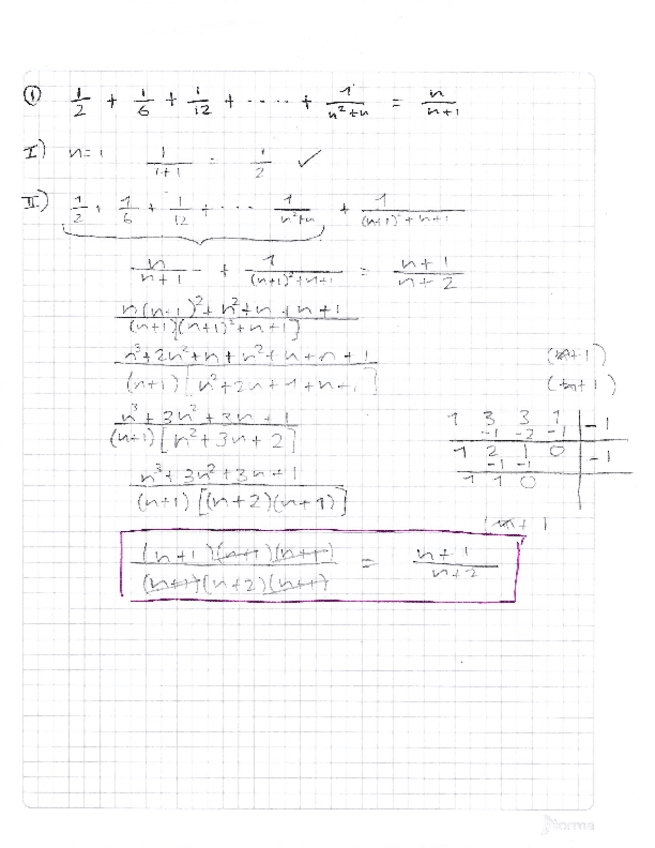 ① 1/2 + 1/6 + 1/12 + ..... + 1/(n²+n) = n/(n+1)
I) n=1 1/(1+1) = 1/2 ✓
II) 1/2 + 1/6 + 1/12 + ... 1/(n²+n) + 1/((n+1)²+n+1)
n/(n+1) + 1/((n+1)²+n+1) = (n+1)/(n+2)
n(n+1)²+n²+n+n+1 / (n+1)[(n+1)²+n+1]
n³+2n²+n+n²+n+n+1 / (n+1)[n²+2n+1+n+1]
(n+1)
(n+1)
n³+3n²+3n+1 / (n+1)[n²+3n+2]
1 3 3 1 | -1
-1 -2 -1
1 2 1 0 | -1
-1 -1
1 1 0
n³+3n²+3n+1 / (n+1)[(n+2)(n+1)]
(n+1
(n+1)(n+1)(n+1) / (n+1)(n+2)(n+1) = (n+1)/(n+2)
Norma